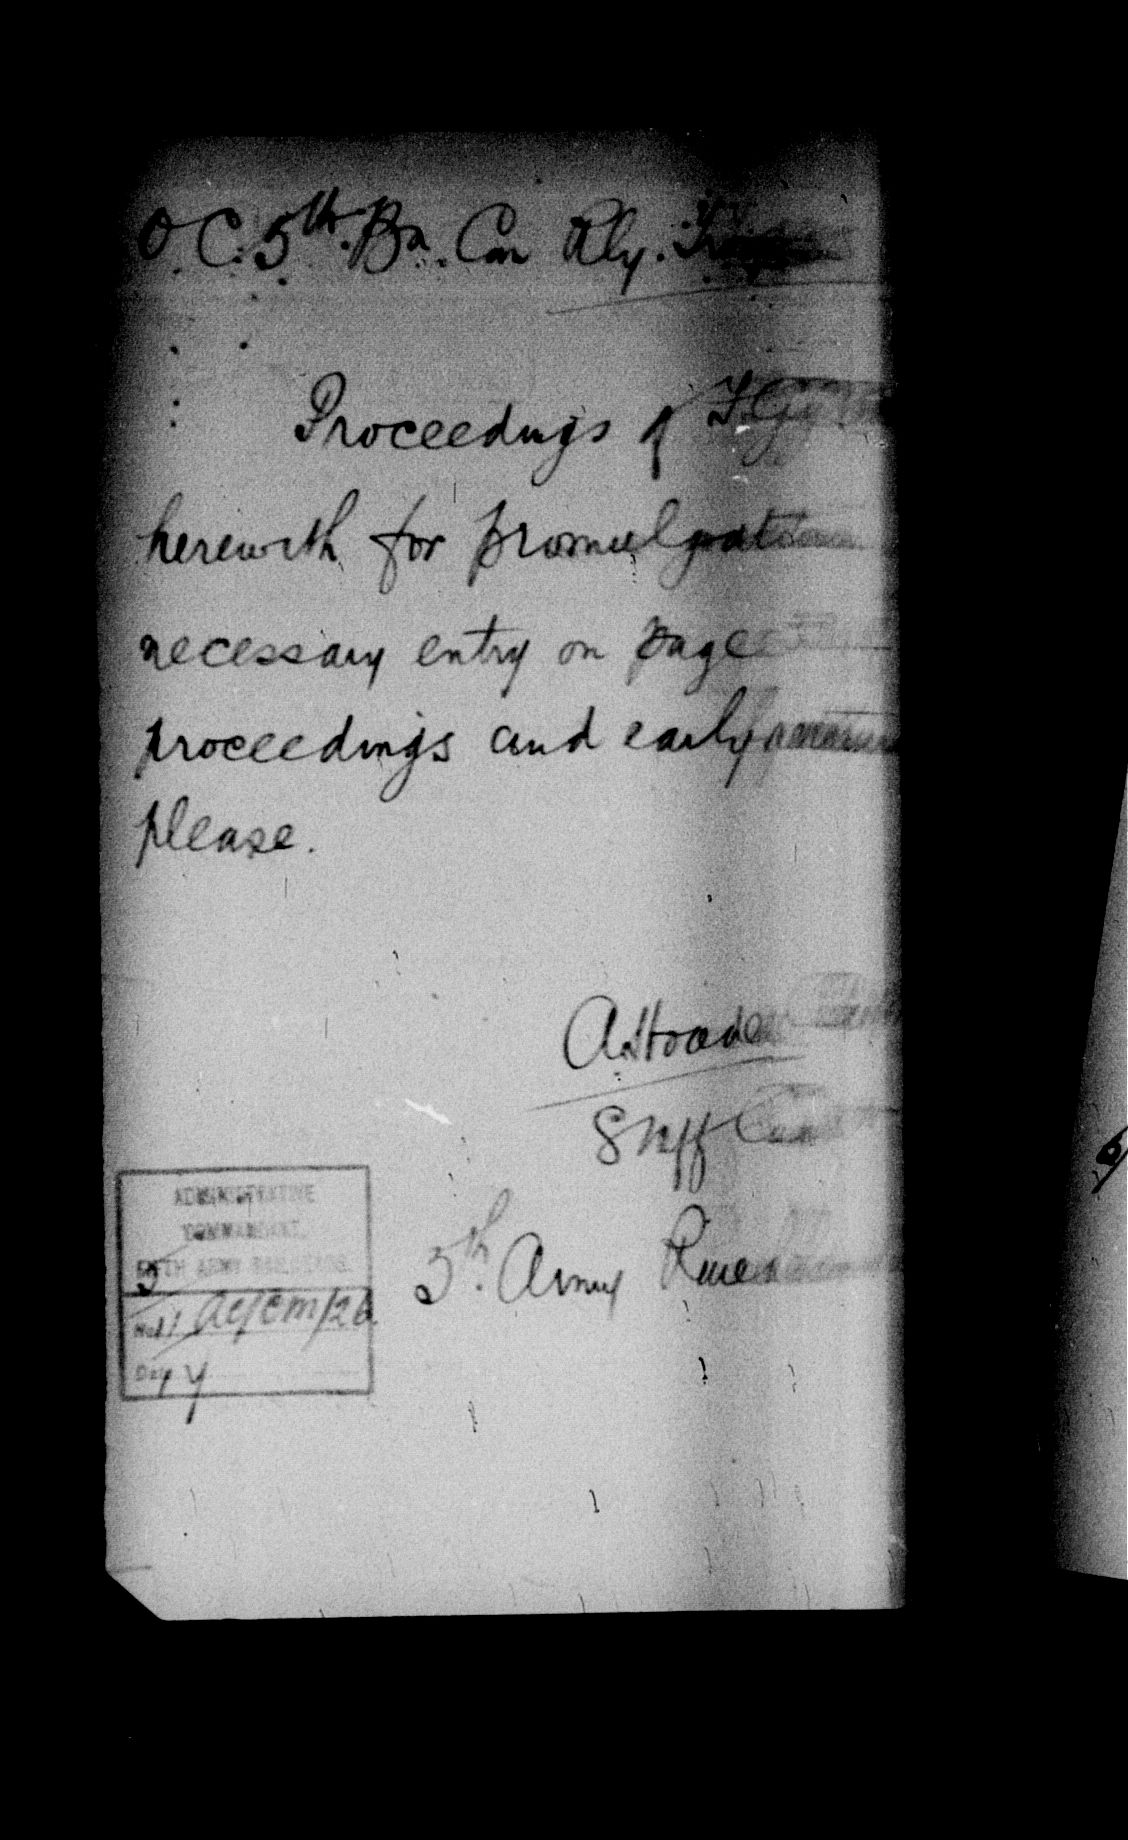 O.C. 5th. Bn. Can Rly.
Proceedings of F.G.
herewith for promulgation
necessary entry on page
proceedings and early
please.
A. Hoade
Staff Capt
5th. Army
ADMINISTRATIVE
COMMANDANT,
FIFTH ARMY RAILHEADS.
No. AC/CM/26.